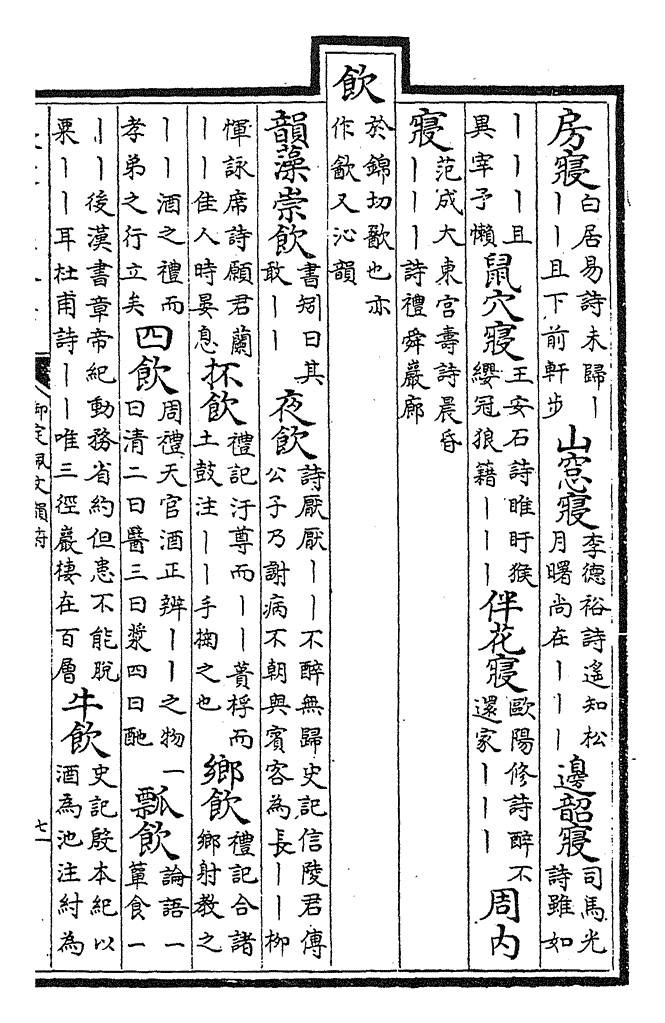 房寢 白居易詩未歸丨丨丨且下前軒步 山窓寢 李德裕詩遙知松月曙尚在丨丨丨 邊韶寢 司馬光詩雖如
丨丨丨且異宰予懶 鼠穴寢 王安石詩睢盱猴纓冠狼籍丨丨丨 伴花寢 歐陽修詩醉不還家丨丨丨 周内
寢 范成大東宮壽詩晨昏丨丨丨詩禮舜巖廊
飲 於錦切歠也亦作㱃又沁韻
韻藻崇飲 書矧曰其敢丨丨 夜飲 詩厭厭丨丨不醉無歸史記信陵君傳公子乃謝病不朝與賓客為長丨丨柳
惲詠席詩願君蘭丨丨佳人時晏息 杯飲 禮記汙尊而丨丨蕢桴而土鼓注丨丨手掬之也 鄉飲 禮記合諸鄉射教之
丨丨酒之禮而孝弟之行立矣 四飲 周禮天官酒正辨丨丨之物一曰清二曰醫三曰漿四曰酏 瓢飲 論語一簞食一
丨丨後漢書章帝紀動務省約但患不能脫粟丨丨耳杜甫詩丨丨唯三徑巖棲在百層 牛飲 史記殷本紀以酒為池注紂為
御定佩文韻府